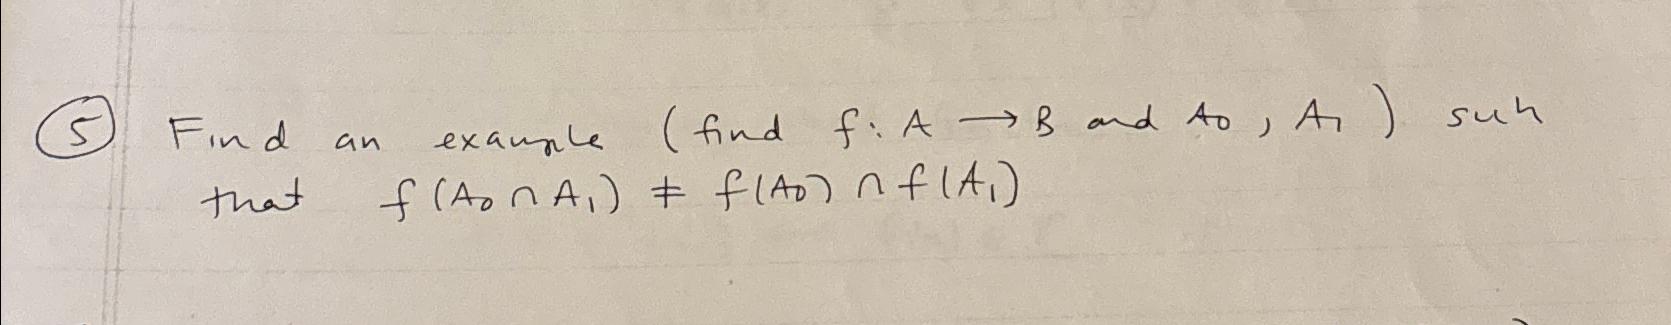 ⑤ Find an example (find f: A → B and A₀, A₁) such
that f(A₀ ∩ A₁) ≠ f(A₀) ∩ f(A₁)